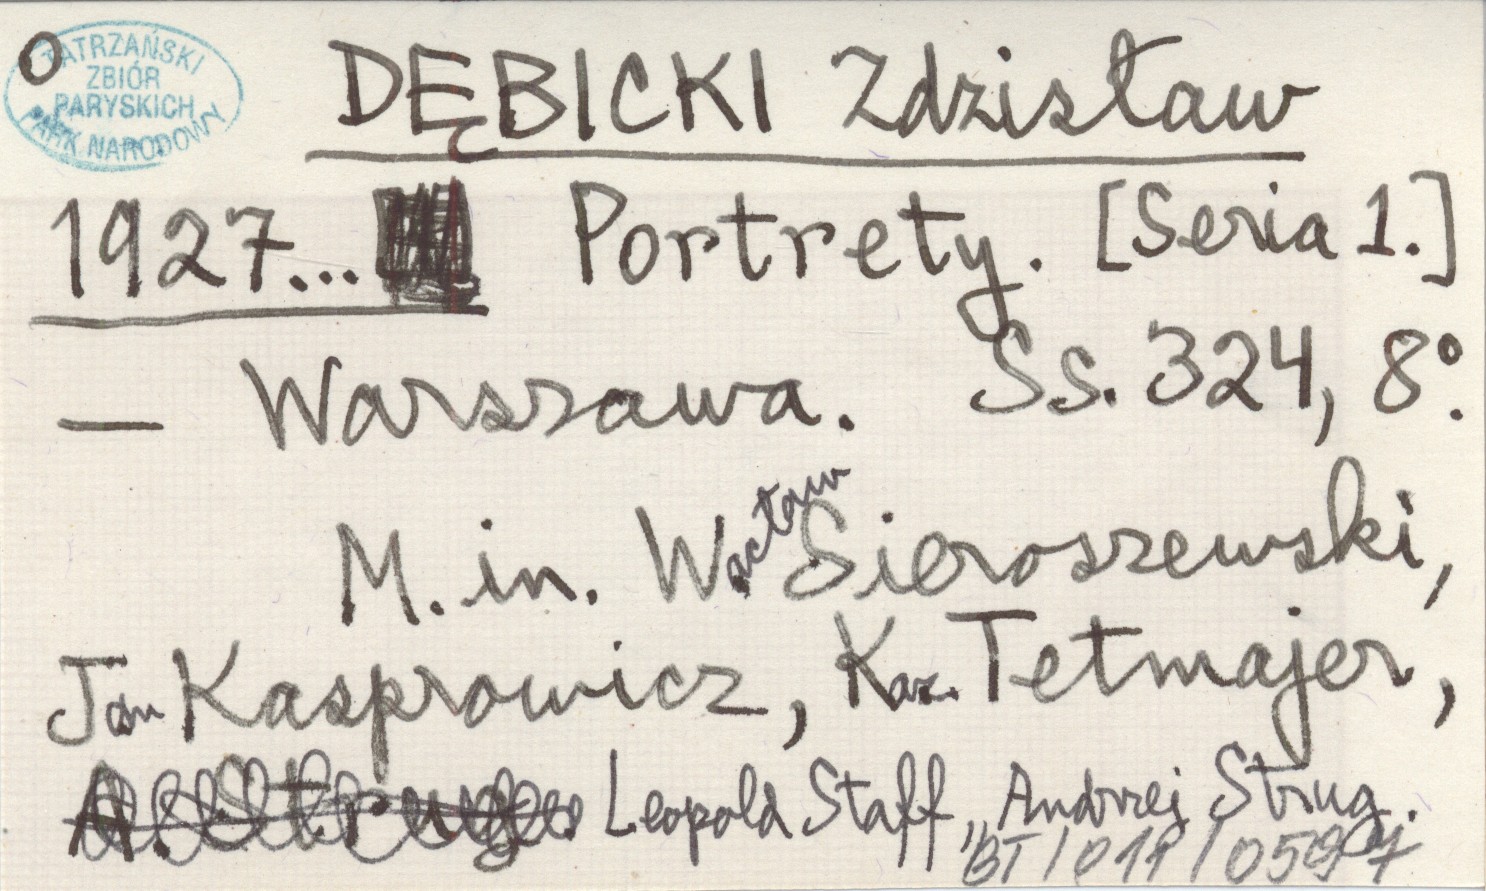 TATRZAŃSKI
ZBIÓR
PARYSKICH
PARK NARODOWY
DĘBICKI Zdzisław
1927... Portrety. [Seria 1.]
— Warszawa. Ss. 324, 8°.
M. in. Wacław Sieroszewski,
Jan Kasprowicz, Kaz. Tetmajer,
A. Strug. Leopold Staff, Andrzej Strug.
BT/011/